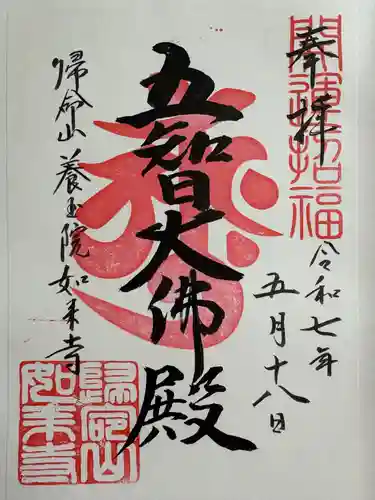 奉拝
開運招福
令和七年
五月十八日
五智大佛殿
帰命山養玉院如来寺
帰命山
如来寺